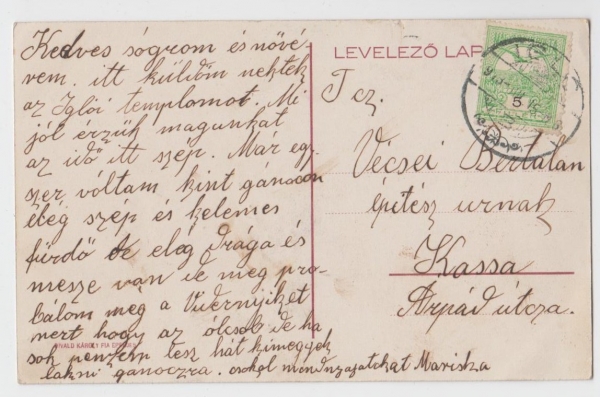 Kedves sógrom és nővé-
rem. itt küldöm nektek
az Iglói templomot. Mi
jól érzük magunkat
az idő itt szép. Már egy-
szer vóltam kint gánócon
elég szép és kelemes
fürdő de elég drága és
messze van de meg pro-
bálom még a
mert hogy az ólcsob de ha
sok penzem lesz hát kimegyek
lakni ganoczra. csokol mindnyajatokat Mariska
DIVALD KÁROLY FIA EPERJES
LEVELEZŐ LAP
IGL
5
T cz.
Vécsei Bertalan
épitész urnak
Kassa
Árpád útcza.